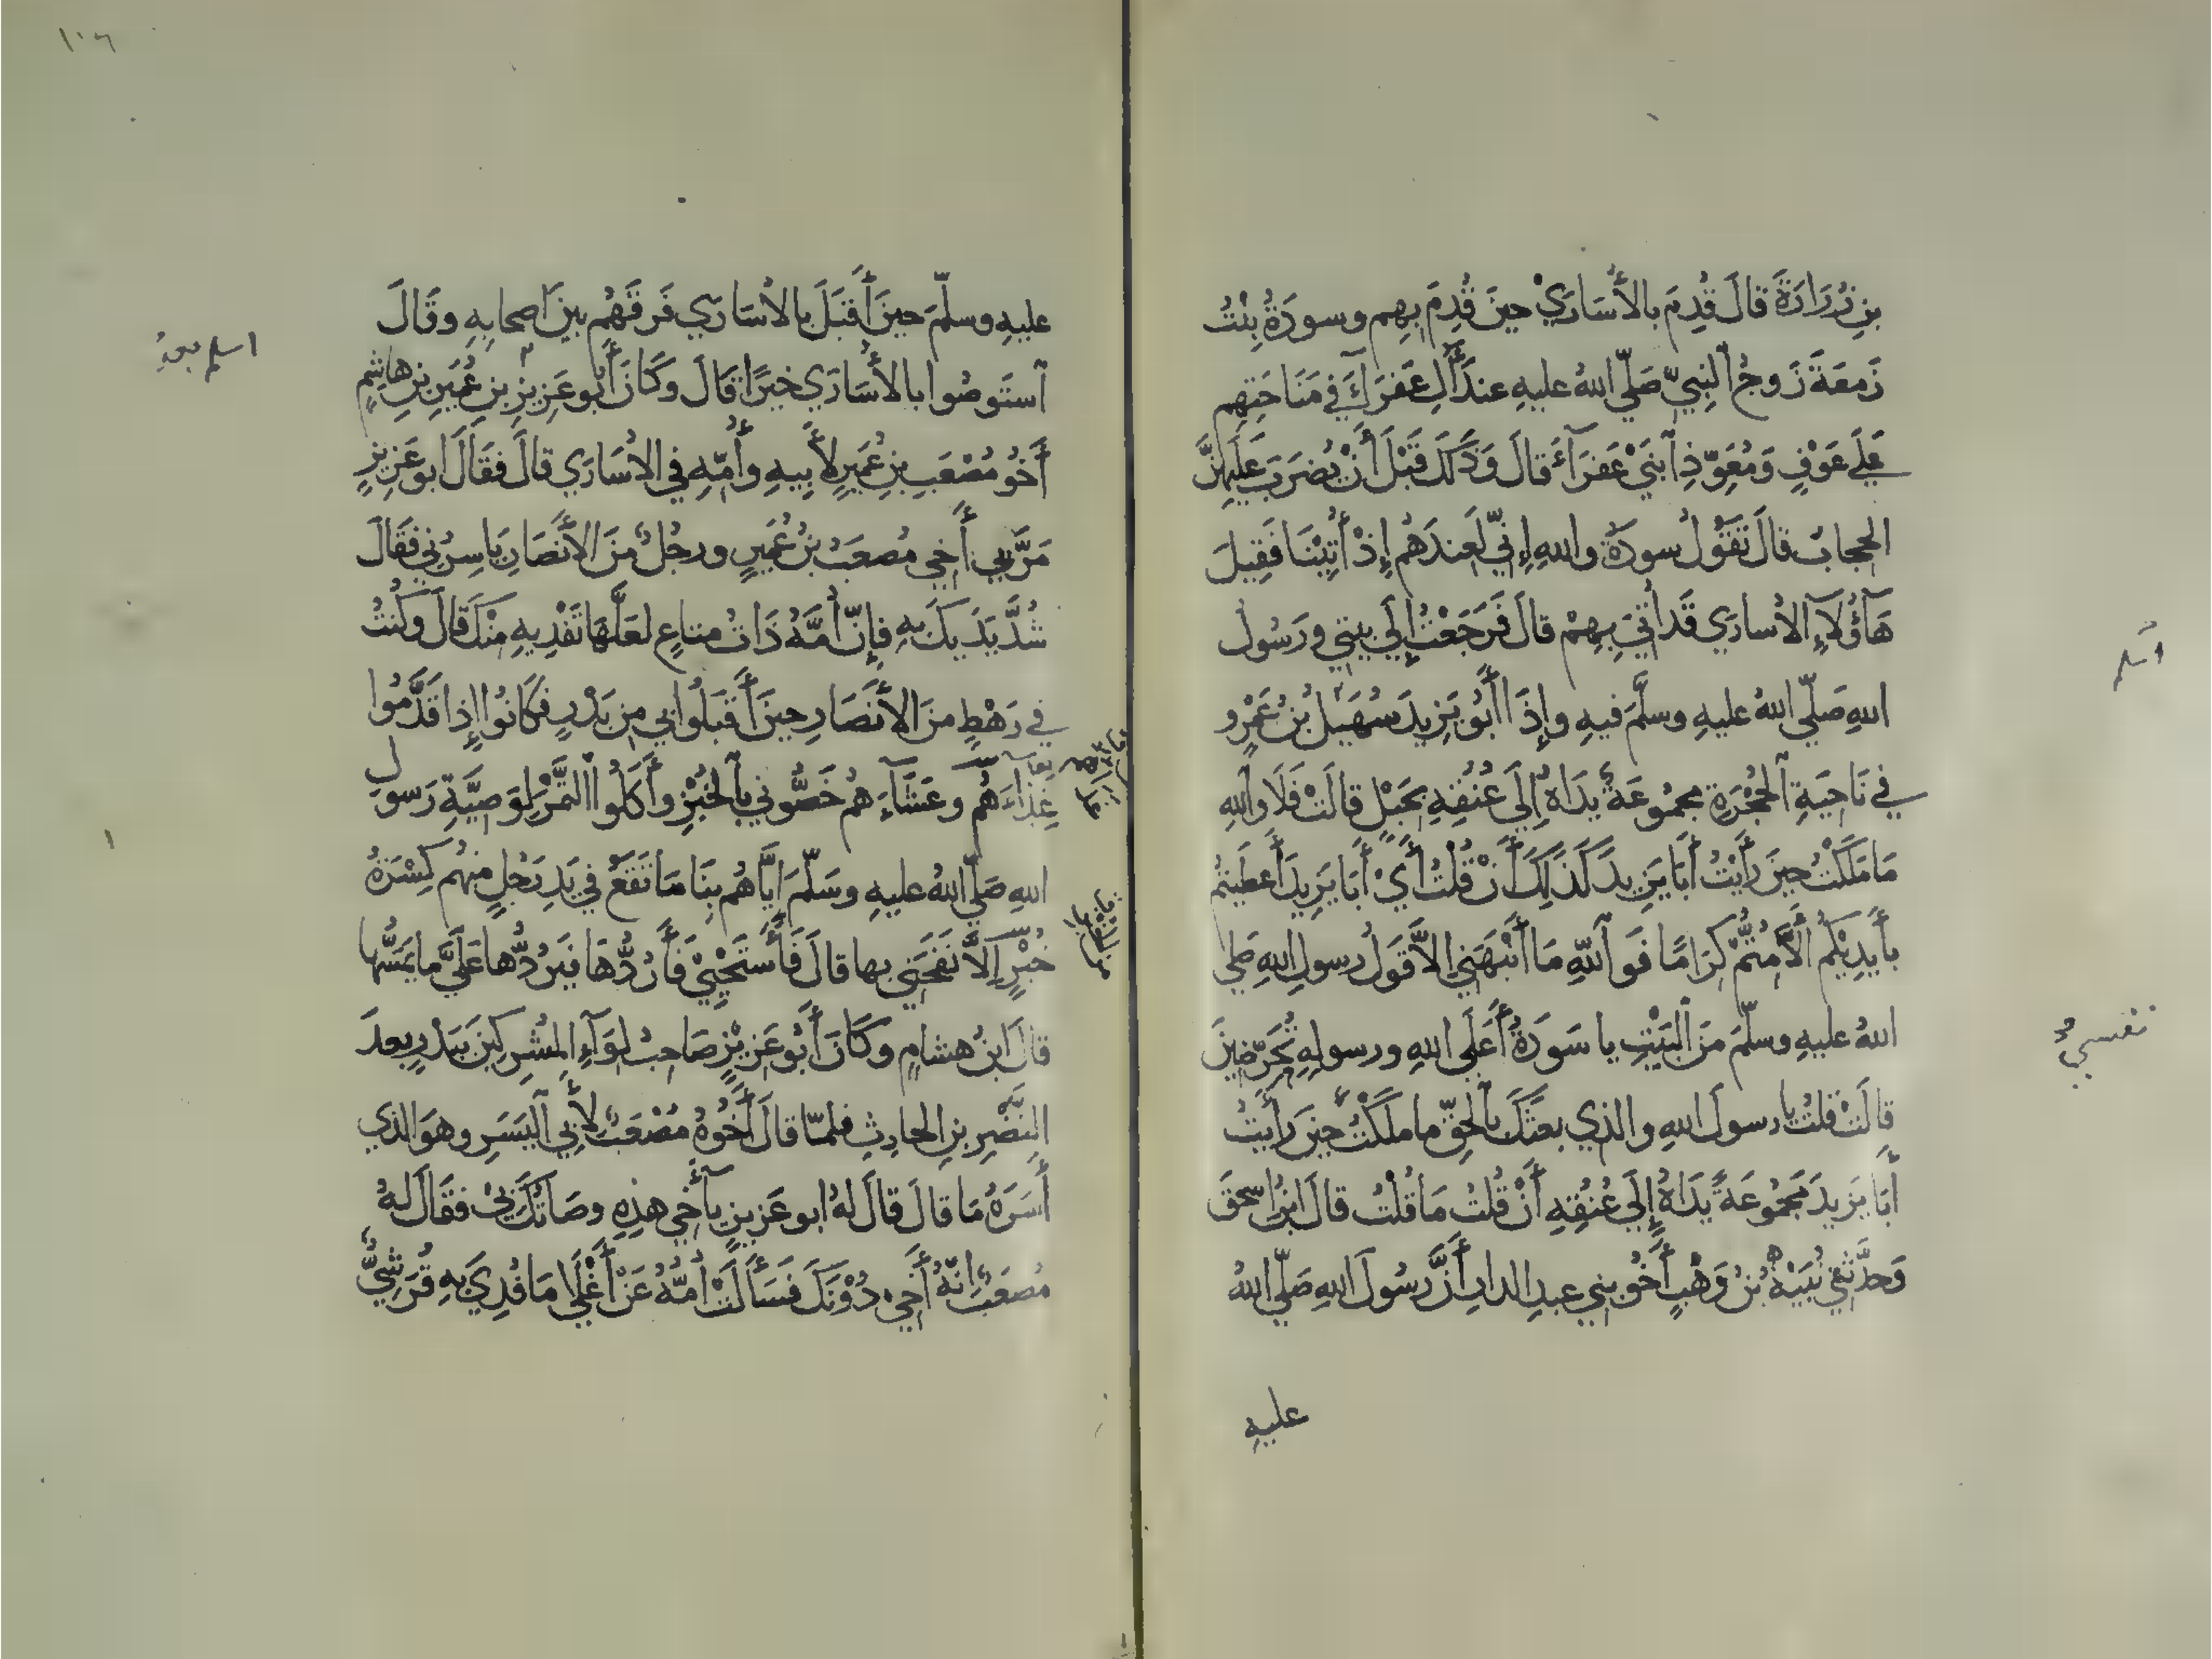 بنِ زُرَارَةَ قالَ قُدِمَ بالأُسَارَيْ حينَ قُدِمَ بِهِم وسودَةُ بِنْتُ
زَمعَةَ زَوجُ النبيِّ صَلّي اللهُ عليهِ عندَ آلِ عَفرَآءَ في مَنَاحَتِهِم
عَلَي عَوْفٍ وَمُعَوِّذِ ابنَيْ عَفرَآءَ قالَ وَذَلكَ قَبْلَ أَنْ يُضرَبَ عَلَيهِنَّ
الحجابُ قالَ تَقَوُلُ سودَةُ واللهِ إِنّي لَعِندَهُم إِذْ أُتِيْنَا فَقِيلَ
هَآؤُلآءِ الأسارَي قَد أُتِيَ بِهِمْ قالَ فَرَجَعْتُ إِلَي بيتي ورَسُولُ
اللهِ صَلّي اللهُ عليهِ وسلَّمَ فيهِ وإِذَا أَبُو يَزِيدَ سُهَيلُ بْنُ عَمْرٍو
في نَاحِيَةِ الحُجْرَةِ مجمُوعَةً يَدَاهُ إِلَي عُنُقِهِ بحَبْلٍ قالَتْ فَلَا واللهِ
مَا مَلَكْتُ حِينَ رَأَيْتُ أَبَا يَزِيدَ كَذَلِكَ أَنْ قُلْتُ أَيْ أَبَا يَزِيدَ أَعطَيتُم
بأَيدِيْكُم أَلَّا مُتُّمْ كِرَامًا فَوَ اللّهِ مَا أَنْبَهَنِي إلاَّ قَولُ رسولِ اللهِ صَلي
اللهُ عليهِ وسلّمَ مَنَ الْبَيْتِ يا سَودَةُ أَعَلَي اللهِ ورسولِهِ تُحَرِّضينَ
قالَتْ قُلتُ يا رسولَ اللهِ والذي بعثَكَ بالحقِّ ما ملَكْتُ حِينَ رَأَيتُ
أَبَا يَزيدَ مَجمُوعَةً يَدَاهُ إِلَي عُنُقِهِ أَنْ قُلتُ مَا قُلْتُ قالَ ابنُ اسحقَ
وَحدَّثَني نُبَيْهُ بْنُ وَهْبٍ أَخُو بني عبدِ الدارِ أَنَّ رسُولَ اللهِ صَلّي اللهُ
عليهِ
أسلم
١٠٦
عليهِ وسلّمَ حينَ أَقبَلَ بالأُسَارَي فَرقَهُم بينَ اصحابِهِ وقَالَ
استَوصُوا بالأُسَارَي خيرًا قالَ وكَانَ أَبو عَزيزِ بنِ عُمَيرِ بنِ هاشمٍ
أَخُو مُصْعَبِ بنِ عُمَيرٍ لأَبِيهِ وأُمّهِ في الأُسَارَي قالَ فقَالَ ابو عَزيزٍ
مَرَّ بي أَخي مُصعَبُ بْنُ عُمَيرٍ ورجُلٌ منَ الأَنصَارِ يَاسِرُني فقَالَ
شُدَّ يَدَيكَ بهِ فإِنّ أُمَّهُ ذَاتُ متاعٍ لعَلَّهَا تَفْدِيهِ مِنْكَ قالَ وكُنتُ
في رَهْطٍ منَ الأَنصَارِ حِينَ أَقبَلُوا بي مِن بَدْرٍ فَكَانُوا إِذا قَدَّمُوا
غِذَآءَهُم وعَشَآءَهُم خَصُّوني بالخُبْزِ وأَكَلُوا التَّمْرَ لِوَصِيَّةِ رَسولِ
اللهِ صَلّي اللهُ عليهِ وسَلّمَ ايَّاهُم بِنَا مَا تَقَعُ في يَدِ رَجُلٍ منهُم كِسْرَةُ
خُبْزٍ إِلَّا نَفَحَنِي بها قالَ فَأَسْتَحْيِيْ فَأَرُدُّهَا فيَرُدُّها عَلَيَّ ما يَمَسُّها
قالَ ابنُ هشامٍ وكَانَ أَبُو عَزِيْزٍ صَاحِبُ لِوَآءِ المشرِكِينَ بِبَدْرٍ بعدَ
النّضْرِ بنِ الحارثِ فلمّا قالَ أَخُوهُ مُصْعَبٌ لأَبي اليَسَرِ وهوَ الذي
أَسَرَهُ مَا قالَ قالَ لهُ ابو عَزيزٍ يآ أَخي هذِهِ وصَاتُكَ بيْ فقَالَ لهُ
مُصعَبٌ إنّهُ أَخي دُوْنَكَ فسَأَلَتْ أُمُّهُ عَنْ أَغْلَا مَا فُدِيَ بهِ قُرَشِيٌّ